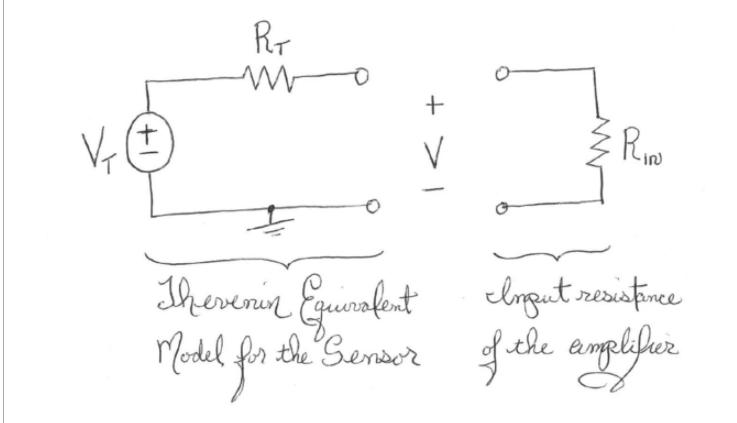 R_T
V_T
+
−
+
V
−
R_IN
Thevenin Equivalent
Model for the Sensor
Input resistance
of the amplifier